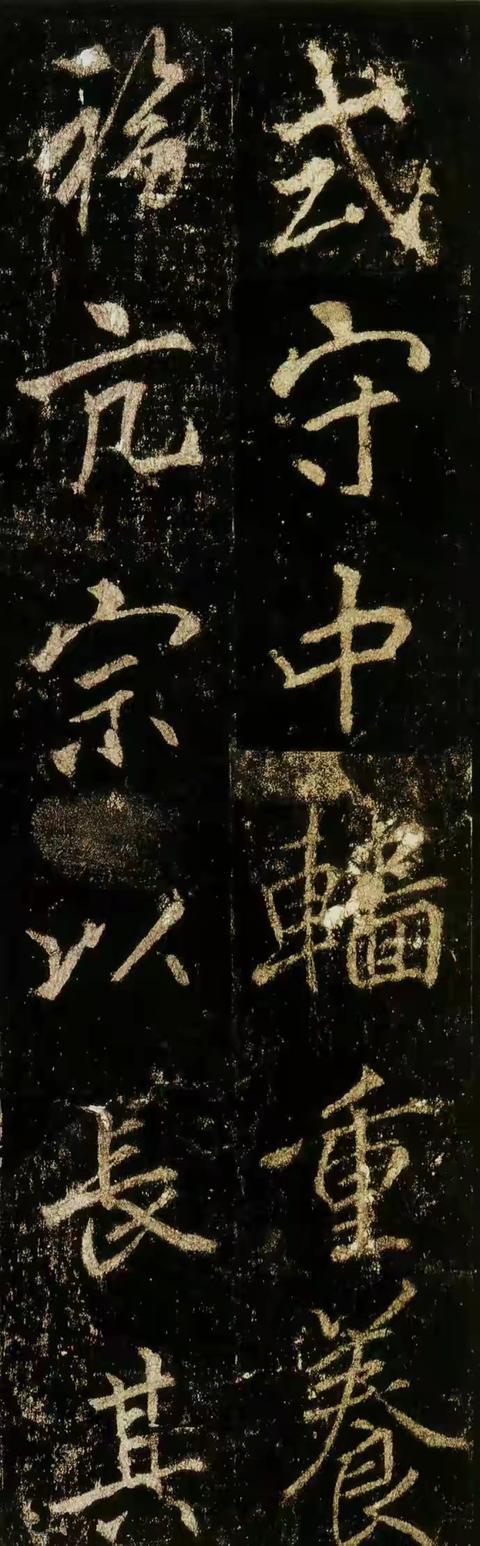 或守中輜重養
福亢宗以長其